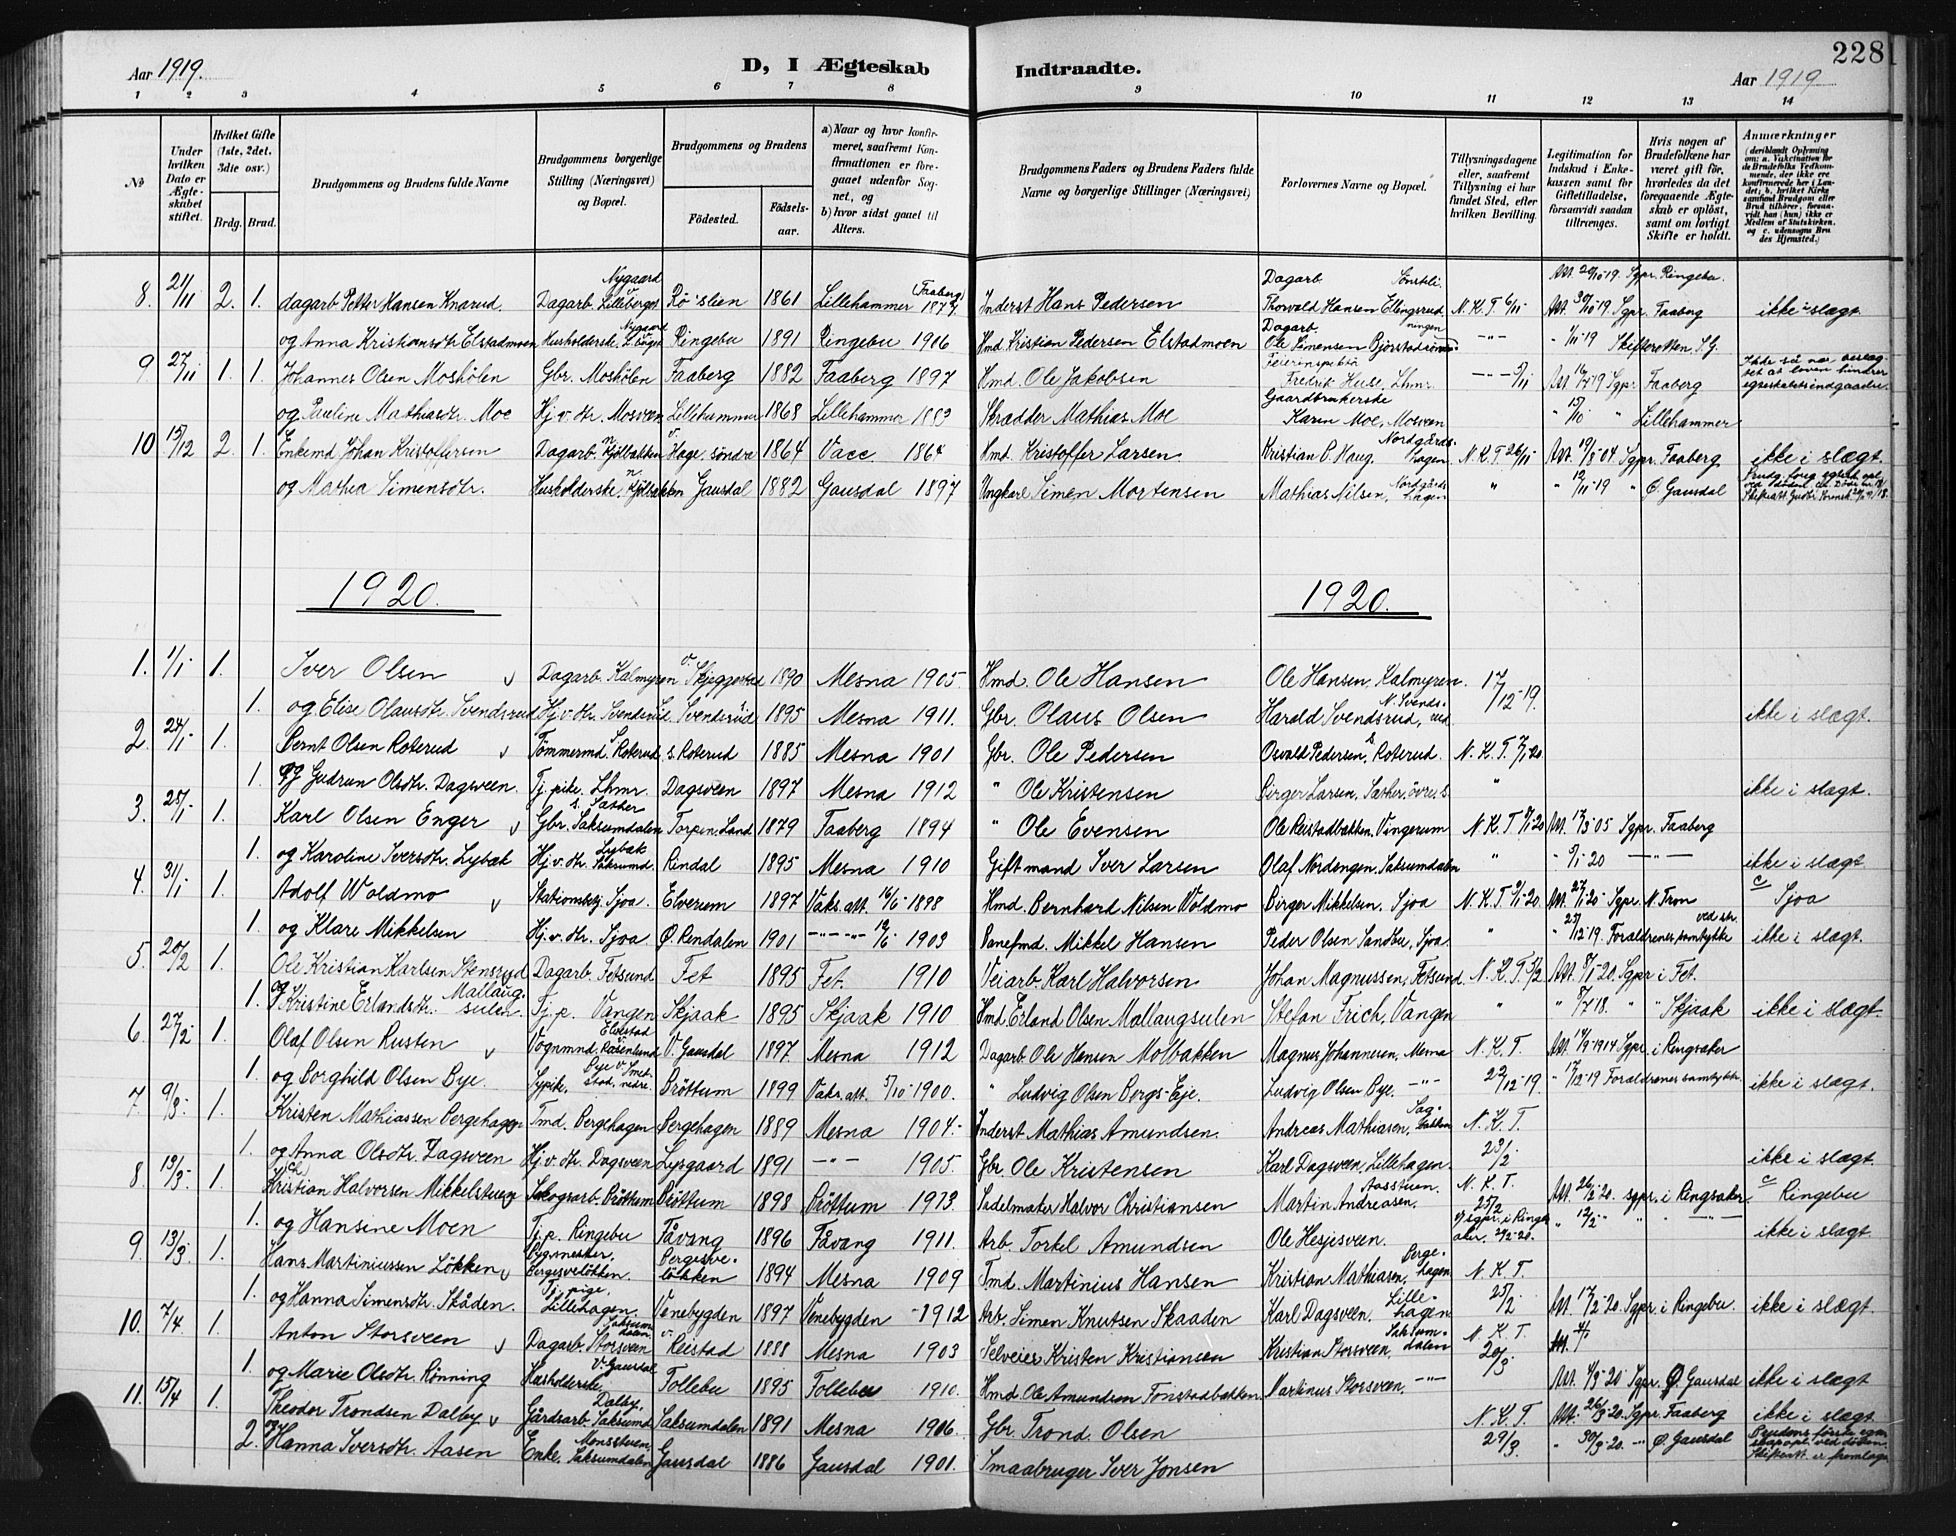 228
Aar 1919.
D, I Ægteskab Indtraadte.
Aar 1919
1 2 3 4 5 6 7 8 9 10 11 12 13 14
№
Under hvilken Dato er Ægteskabet stiftet.
Hvilket Gifte (1ste, 2det, 3die osv.)
Brdg. Brud.
Brudgommens og Brudens fulde Navne
Brudgommens borgerlige Stilling (Næringsvei) og Bopæl.
Brudgommens og Brudens
Fødested. Fødselsaar.
a) Naar og hvor konfirmeret, saafremt Konfirmationen er foregaaet udenfor Sognet, og
b) hvor sidst gaaet til Alters.
Brudgommens Faders og Brudens Faders fulde Navne og borgerlige Stillinger (Næringsvei)
Forlovernes Navne og Bopæl.
Tillysningsdagene eller, saafremt Tillysning ei har fundet Sted, efter hvilken Bevilling.
Legitimation for Indskud i Enkekassen samt for Giftetilladelse, forsaavidt saadan tiltrænges.
Hvis nogen af Brudefolkene har været gift før, hvorledes da det foregaaende Ægteskab er opløst, samt om lovligt Skifte er holdt.
Anmærkninger (deriblandt Oplysning om: a. Vakcination for de Brudefolks Vedkommende, der ikke ere konfirmerede her i Landet; b. hvilket Kirkesamfund Brudgom eller Brud tilhører, forsaavidt han (hun) ikke er Medlem af Statskirken, og c. udensogns Brudes Hjemsted.)
8. 21/11 2. 1. dagarb. Petter Hansen Knarud. Dagarb. Lilleberget v. Nygaard 1861 Lillehammer Faaberg Inderst Hans Pedersen Dagarb. Thorvald Hansen Ellingsrud N. K. T. 6/11 Att. 30/10-19. Sgpr. Faaberg ikke i slægt.
og Anna Kristiansdtr. Elstadmoen Husholderske, Nygaard Ringebu 1891 Ringebu 1906 Hmd. Kristian Pedersen Elstadmoen Dagarb. Ole Simensen 1/11-19 Skifteretten S. G.
9 27/11 1. 1. Johannes Olsen Moshölen Gbr. Moshölen Faaberg 1882 Faaberg 1897 Hmd. Ole Jakobsen Fredrik Huse, Lhmr. Sgpr. Faaberg
og Pauline Mathiasdtr. Moe Hj. v. dtr. Mosveen Lillehammer 1868 Lillehammer 1883 Skrædder Mathias Moe Gaardbrukerske Karen Moe, Mosveen 15/10 " Lillehammer
10 15/12 2. 1. Enkemd. Johan Kristoffersen Dagarb. n. Kjölbakken Hage, söndre 1864 Vacc. 1864 Hmd. Kristoffer Larsen Kristian P. Haug. Nordgårdshagen N. K. T. 26/11 Att. 19/8-04 Sgpr. Faaberg ikke i slægt.
og Mathea Simensdtr. Husholderske, n. Kjölbakken Gausdal 1882 Gausdal 1897 Ungkare Simen Mortensen Mathias Nilsen, Nordgårdshagen " 12/11-19 " Ö. Gausdal
1920. 1920.
1. 1/1 1. Iver Olsen Dagarb. Kalmyren v. Skjeggestad 1890 Mesna 1905. Hmd. Ole Hansen Ole Hansen, Kalmyren. 17/12-19.
1. og Elise Olausdtr. Svendsrud Hj. v. dtr. Svendsrud Svendsrud 1895 Mesna 1911. Gbr. Olaus Olsen Harald Svendsrud, N. Svendsrud ikke i slægt.
2. 24/1 1. Bernt Olsen Roterud Tömmermd. s. Roterud s. Roterud 1885 Mesna 1901 Gbr. Ole Pedersen Osvald Pedersen, s. Roterud. N. K. T. 7/1-20.
1. og Gudrun Olsdtr. Dagsveen. Tj. pike. Lhmr. Dagsveen 1897 Mesna 1912 " Ole Kristensen Birger Larsen, Sæther, övre. " ikke i slægt.
3. 25/1 1. Karl Olsen Enger Gbr. s. Sæther Saksumdalen Torpen Land 1879 Faaberg 1894 " Ole Evensen Ole Reistadbakken, Vingerum N. K. T. 9/1-20 Att. 17/3-05 Sgpr. Faaberg
1. og Karoline Iversdtr. Lybæk Hj. v. dtr. Lybæk Saksumd. Rindal 1895 Mesna 1910 Giftmand Iver Larsen Olaf Nordengen, Saksumdalen " 9/1-20 — " — ikke i slægt.
4. 31/1 1. Adolf Woldmo Stationsbetj. Sjoa. Elverum 1897 Vaks. att. 16/6-1898 Hmd. Bernhard Nilsen Voldmo Birger Mikkelsen. Sjoa N. K. T. 9/1-20. Att. 27/1-20- Sgpr. N. Fron c/ Sjoa
1. og Klare Mikkelsen Hj. v. dtr. Sjoa. Ö. Rendalen 1901 —"—"— 12/6 1903 Banefmd. Mikkel Hansen Peder Olsen Sandbu, Sjoa. " 23/12-19 Forældrenes samtykke ved str. ikke i slægt.
5. 20/2 1. Ole Kristian Karlsen Stensrud Dagarb. Fetsund Fet 1895 Fet. 1910 Veiarb. Karl Halvorsen Johan Magnussen, Fetsund. N. K. T. 5/2 Att. 8/1-20. Sgpr. i Fet.
1. og Kristine Erlandsdtr. Mallaugsulen. Tj. p. Vangen Skjaak 1895 Skjaak 1910 Hmd. Erland Olsen Mallaugsulen Stefan Frich, Vangen " " " Skjaak ikke i slægt.
6. 27/2 1. Olaf Olsen Rusten Vognmnd. Rosenlund V. Gausdal 1897. Mesna 1912 Dagarb. Ole Hansen Molbakken Magnus Johannesen, Mesna N. K. T. Att. 14/9-1914 Sgpr. i Ringsaker
1. og Borghild Olsen Bye. Sypike. Bye v. Smestad, nedre. Bröttum 1899 Vaks. att. 5/10-1900. " Ludvig Olsen Bergs-Eje. Ludvig Olsen Bye. —"— 22/12-19. " 17/12-19 Forældrenes samtykke. ikke i slægt.
7. 9/3. 1. Kristen Mathiassen Bergehagen Tmd. Bergehagen Bergehagen 1889 Mesna 1904.- Inderst Mathias Amundsen. Andreas Mathiasen, N. K. T.
1. og Anna Olsdtr. Dagsveen Hj. v. dtr. Dagsveen Lysgaard 1891 —"— 1905. Gbr. Ole Kristensen Karl Dagsveen, Lillehagen. 23/2 ikke i slægt.
8. 13/3. 1. Kristian Halvorsen Mikkelstuen Skogsarb. Bröttum Bröttum 1898 Bröttum 1913. Sadelmaker Halvor Christiansen Martin Andreasen, Aasstuen. N. K. T. 25/2 Att. 26/2-20. sgpr. i Ringsaker c/ Ringebu
1. og Hansine Moen Tj. p. Ringebu Fåvang 1896 Fåvang 1911. Arb. Torkel Amundsen Ole Hesjesveen. v/ sgpr. i Ringsaker. 22/2-20. " 12/2 " " —"— ikke i slægt
9. 13/3 1. Hans Martiniussen Lökken Bergesvelökken. Bergesvelökken 1894 Mesna 1909 Tmd. Martinius Hansen Kristian Mathiasen, Bergehagen N. K. T.
1. og Hanna Simensdtr. Skåden. Tj. pige. Lillehagen. Venebygden 1897 Venebygden -1912 Arb. Simen Knutsen Skaaden Karl Dagsveen. Lillehagen 25/2 Att. 17/2-20. Sgpr. i Ringebu. ikke i slægt.
10. 7/4 1. Anton Storsveen Dagarb. Storsveen Saksumdalen. v. Reistad 1888 Mesna 1903 Selveier Kristen Kristiansen Kristian Storsveen, Saksumdalen N. K. T.
1. og Marie Olsdtr. Rönning Husholderske, V. Gausdal Follebu 1895 Follebu 1910. Hmd. Ole Amundsen Fonstadbakken. Martinus Storsveen. —"— 20/3. Att. 4/3-20 Sgpr. Ö. Gausdal ikke i slægt
11. 15/4 1. Theodor Trondsen Dalby Gårdsarb. Dalby, Saksumd. Saksumdalen 1891 Mesna 1906. Gbr. Trond Olsen N. K. T. Att. 26/3-20. Sgpr. Faaberg ikke i slægt.
2. og Hanna Iversdtr. Aasen Enke. Monsstuen, Saksumdalen Gausdal 1886 Gausdal 1901. Smaabruger Iver Jonsen 29/3 " 30/3-20. —"— Ö. Gausdal Brudens første egteskap opl. ved döden. Skifteatt. er fremlagt